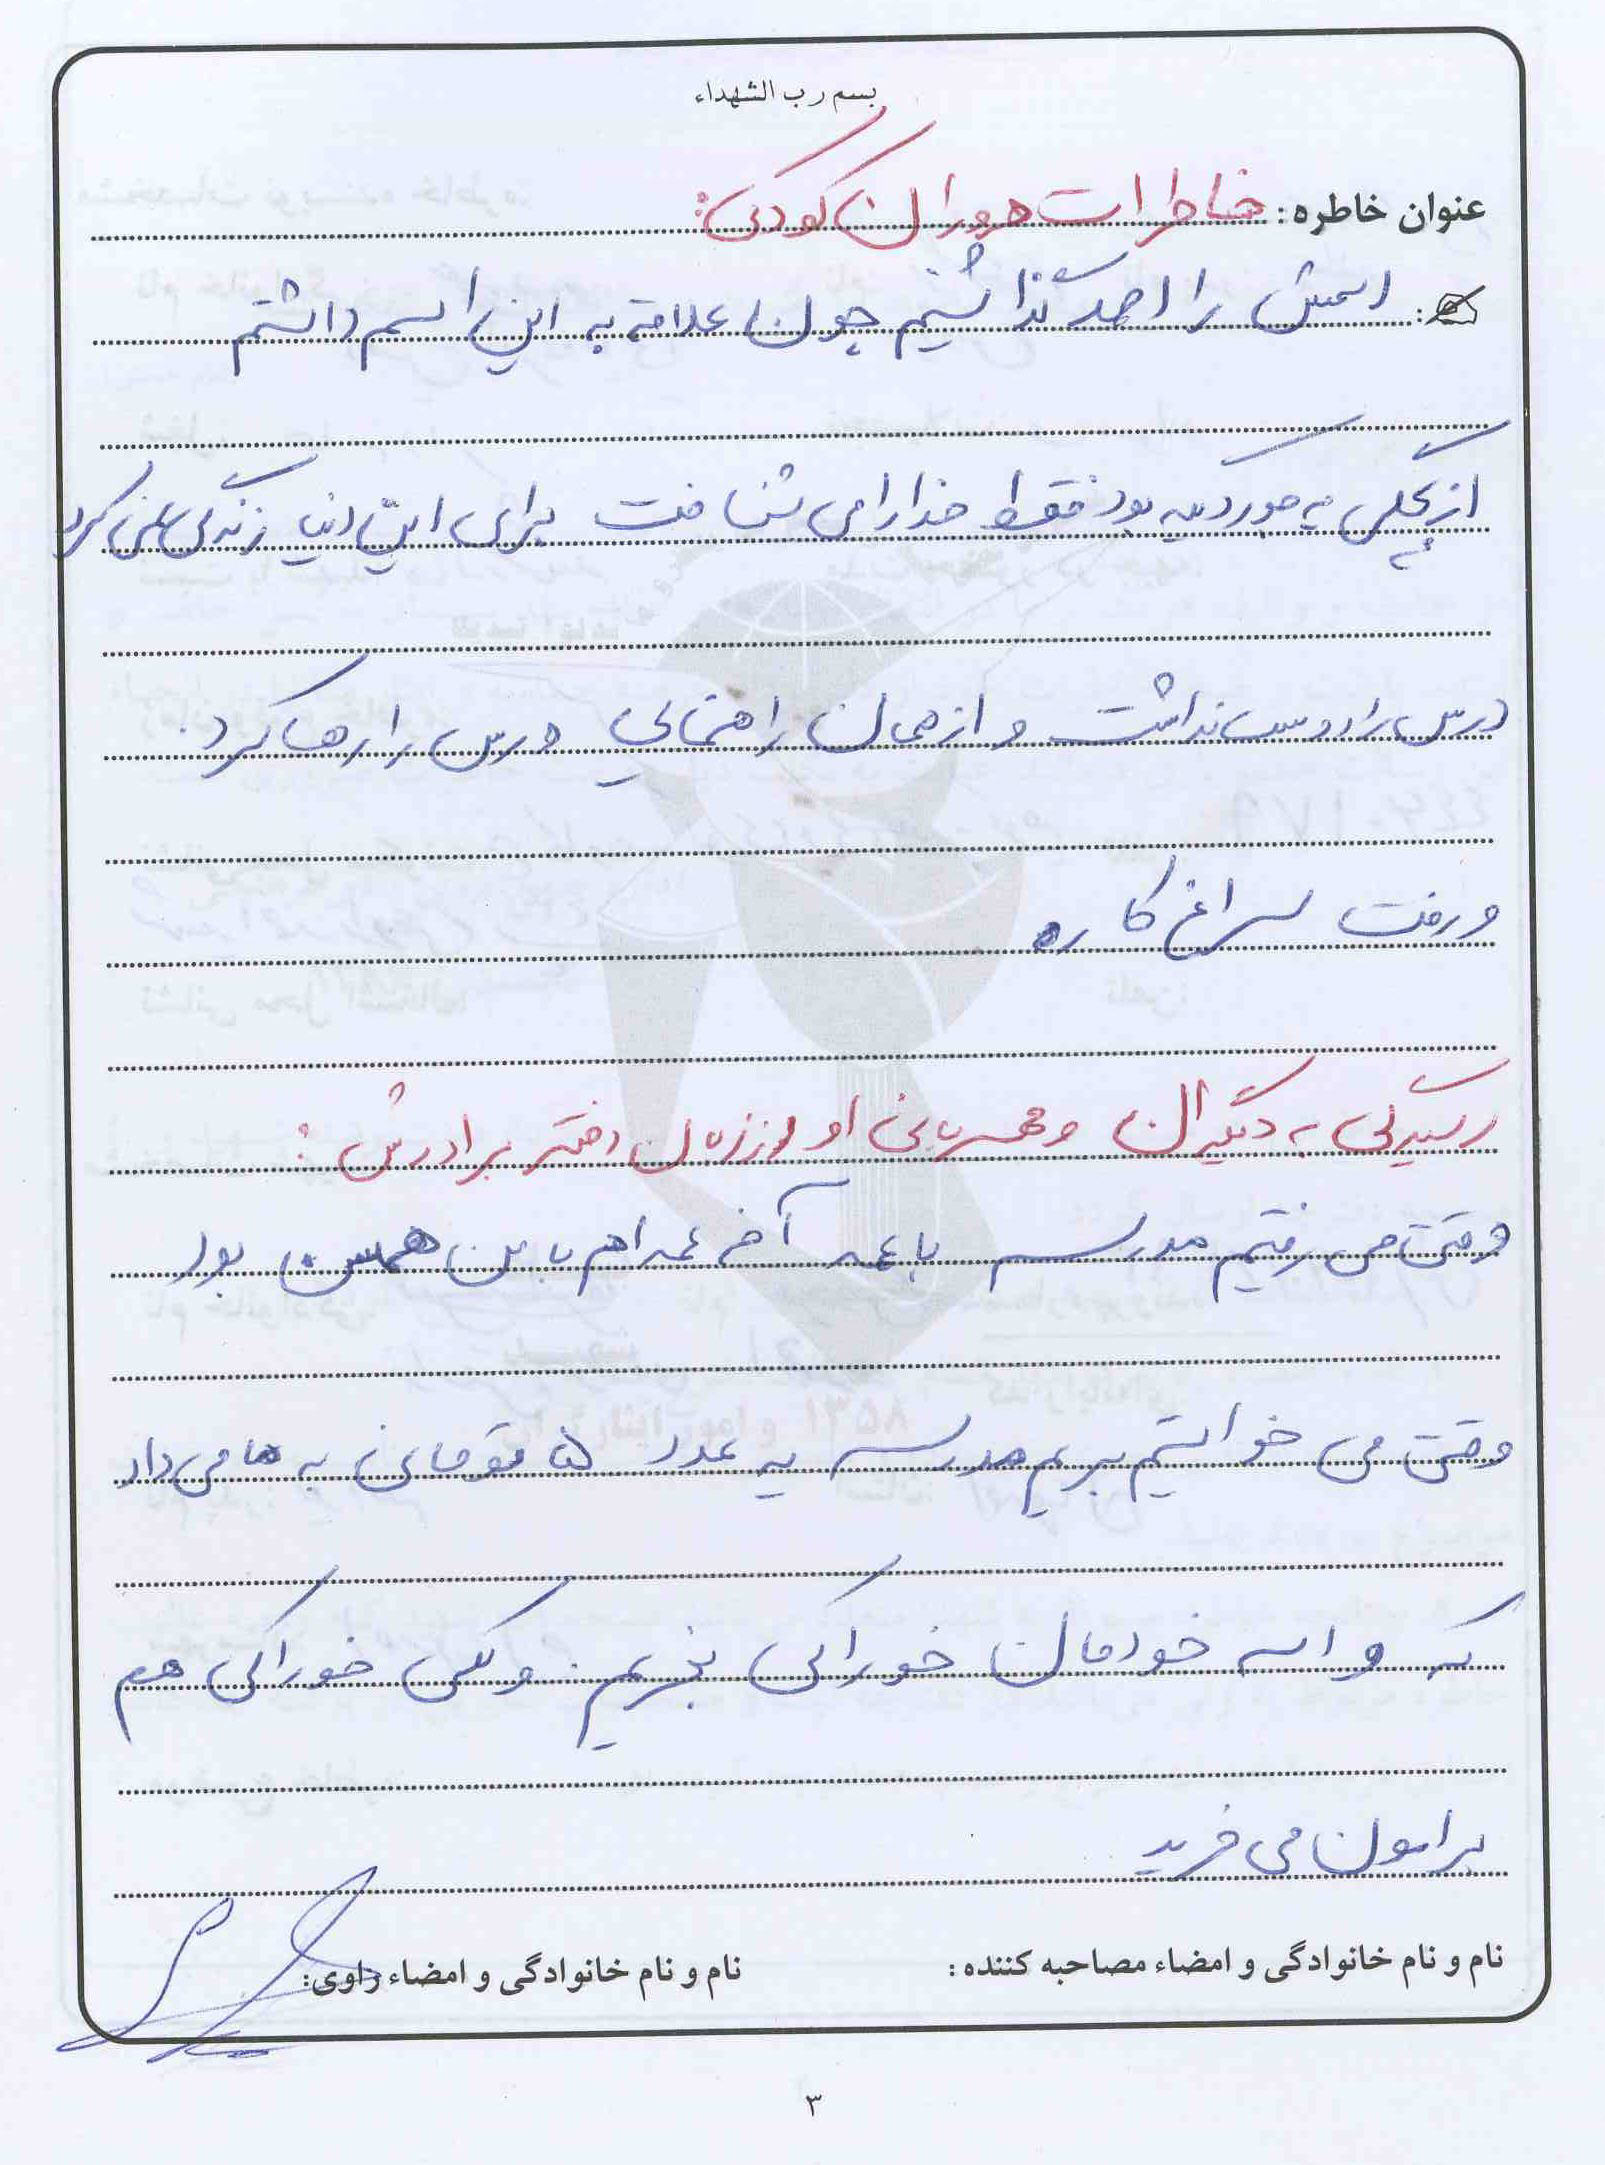 بسم رب الشهداء
عنوان خاطره: خاطرات دوران کودکی:
اسمش را احمد گذاشتیم چون علاقه به این اسم داشتم
از بچگی یه جور دیگه بود فقط خدا را می شناخت برای این دنیا زندگی نمی کرد
درس را دوست نداشت و از همان راهنمایی درس را رها کرد.
و رفت سراغ کار
رسیدگی به دیگران و مهربانی او از زبان دختر برادرش:
وقتی می رفتیم مدرسه با عمه آخه عمه ام با من همسن بود
وقتی می خواستیم بریم مدرسه یه عدد ۵ تومانی به ما می داد
که واسه خودمان خوراکی بخریم. ولی خوراکی هم
برامون می خرید
نام و نام خانوادگی و امضاء مصاحبه کننده:
نام و نام خانوادگی و امضاء راوی:
۳